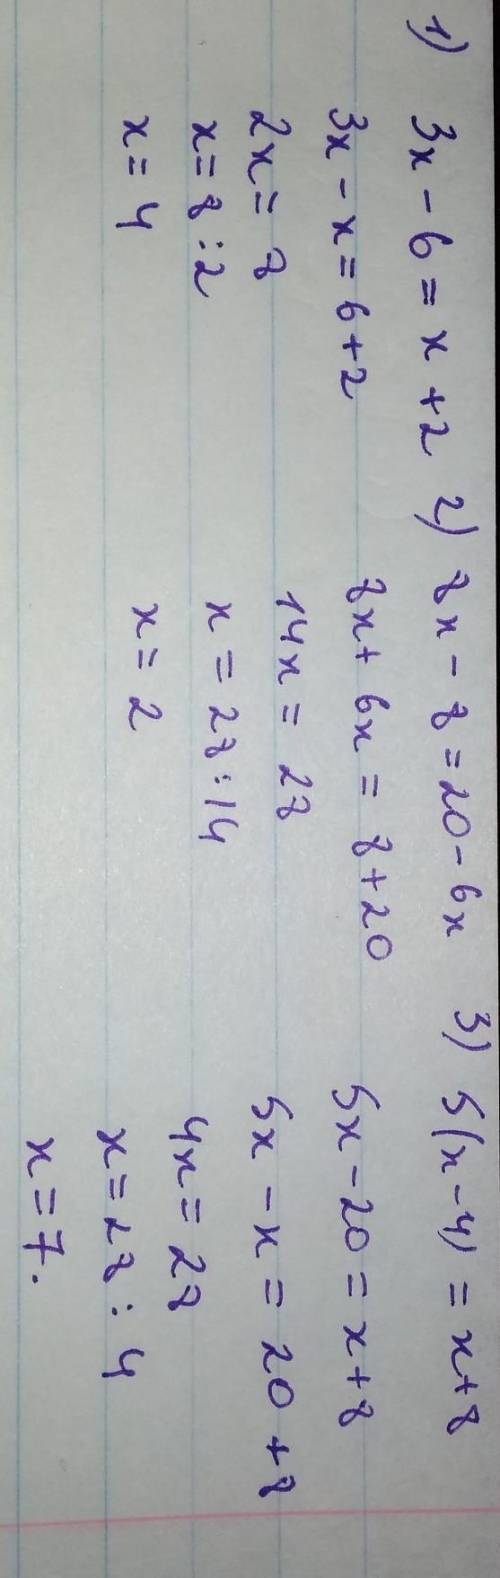 1) 3x - 6 = x + 2
3x - x = 6 + 2
2x = 8
x = 8 : 2
x = 4
2) 8x - 8 = 20 - 6x
8x + 6x = 8 + 20
14x = 28
x = 28 : 14
x = 2
3) 5(x - 4) = x + 8
5x - 20 = x + 8
5x - x = 20 + 8
4x = 28
x = 28 : 4
x = 7.